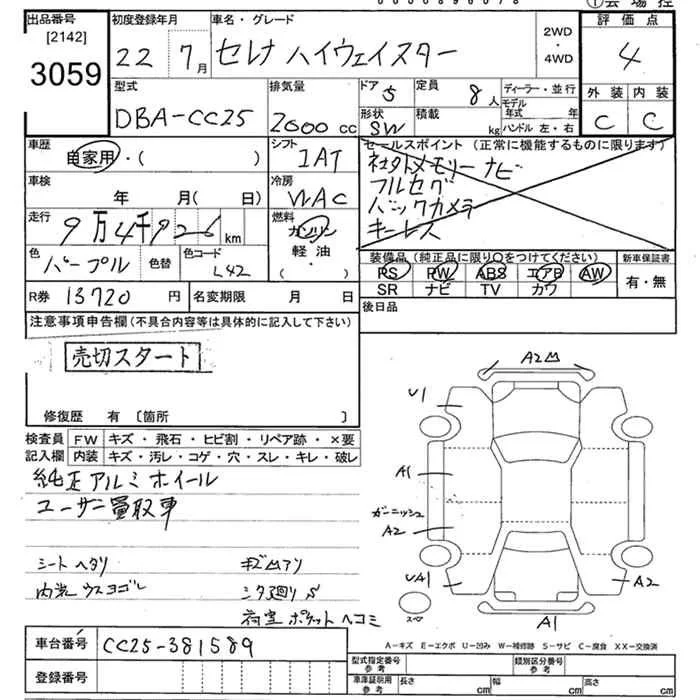 ①会場控
出品番号 初度登録年月 車名・グレード 2WD ・ 4WD 評価点
[2142]
3059 22 7月 セレナ ハイウェイスター 4
型式 排気量 ドア 5 定員 8人 ディーラー・並行 外装 内装
DBA-CC25 2000cc 形状 SW 積載 kg モデル年式 年 ハンドル 左・右 C C
車歴 自家用・( ) シフト IAT セールスポイント (正常に機能するものに限ります)
社外メモリーナビ
フルセグ
バックカメラ
キーレス
車検 年 月(日) 冷房 WAC
走行 9万4千926km 燃料 ガソリン 軽油 ・ ( )
色 パープル 色替 色コード L42
装備品 (純正品に限り○をつけてください) 新車保証書
PS PW ABS エアB AW 有・無
SR ナビ TV カワ
R券 13720円 名変期限 月 日 後日品
注意事項申告欄 (不具合内容等は具体的に記入して下さい)
売切スタート
修復歴 有 〔箇所 〕
検査員 FW キズ・飛石・ヒビ割・リペア跡・×要
記入欄 内装 キズ・汚レ・コゲ・穴・スレ・キレ・破レ
純正アルミホイール
ユーザー買取車
シートヘタリ
内装ウスヨゴレ
荷室ポケットヘコミ
A2凹
U1
A1
ガーニッシュ
A2
UA1
A2
スペア
A1
A-キズ E-エクボ U-凹み W-補修跡 S-サビ C-腐食 XX-交換済
車台番号 CC25-381589
型式指定番号 参考 類別区分番号 参考
登録番号
車庫証明用 参考 長さ cm 幅 cm 高さ cm